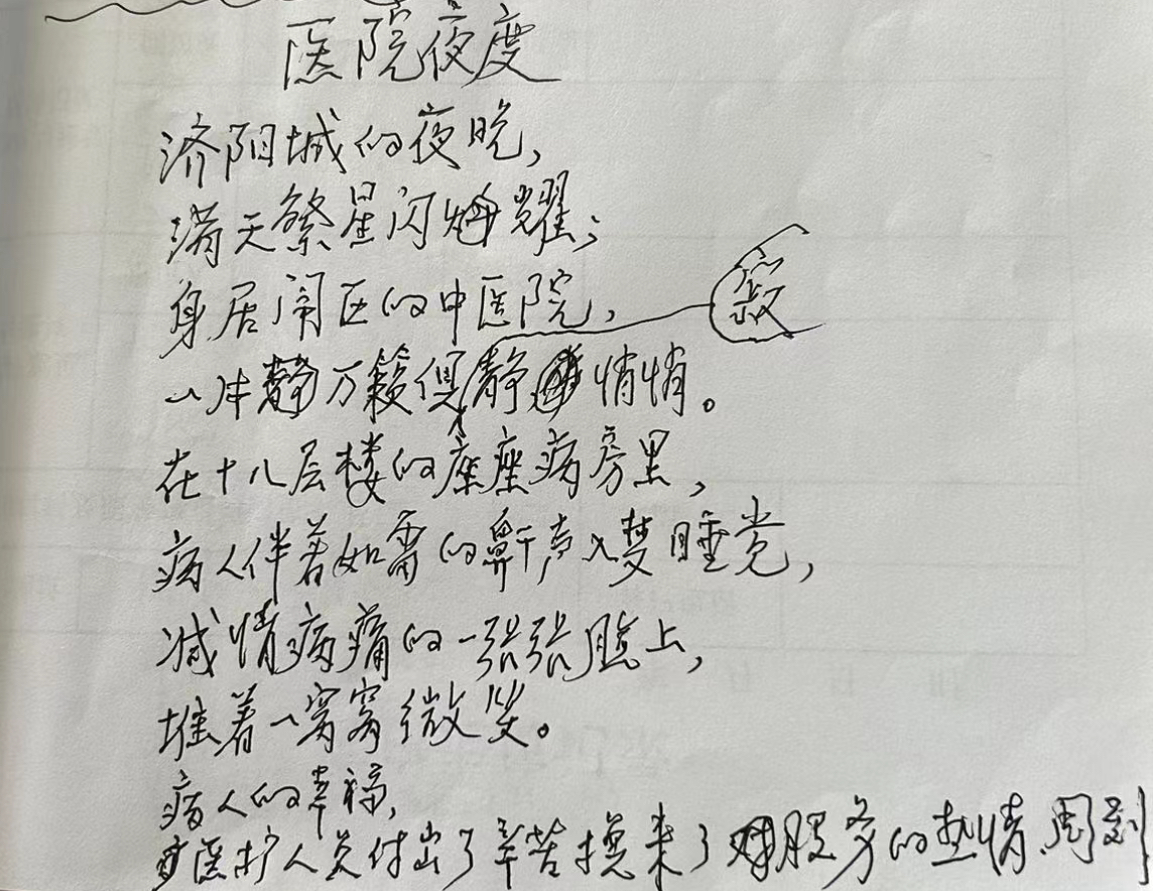 医院夜度
济阳城的夜晚,
满天繁星闪耀;
身居闹区的中医院,
寂
一片万籁俱静悄悄。
在十八层楼的座座病房里,
病人伴着如雷的鼾声入梦睡觉,
减情病痛的一张张脸上,
堆着一窝窝微笑。
病人的幸福,
医护人员付出了辛苦换来了服务的热情周到